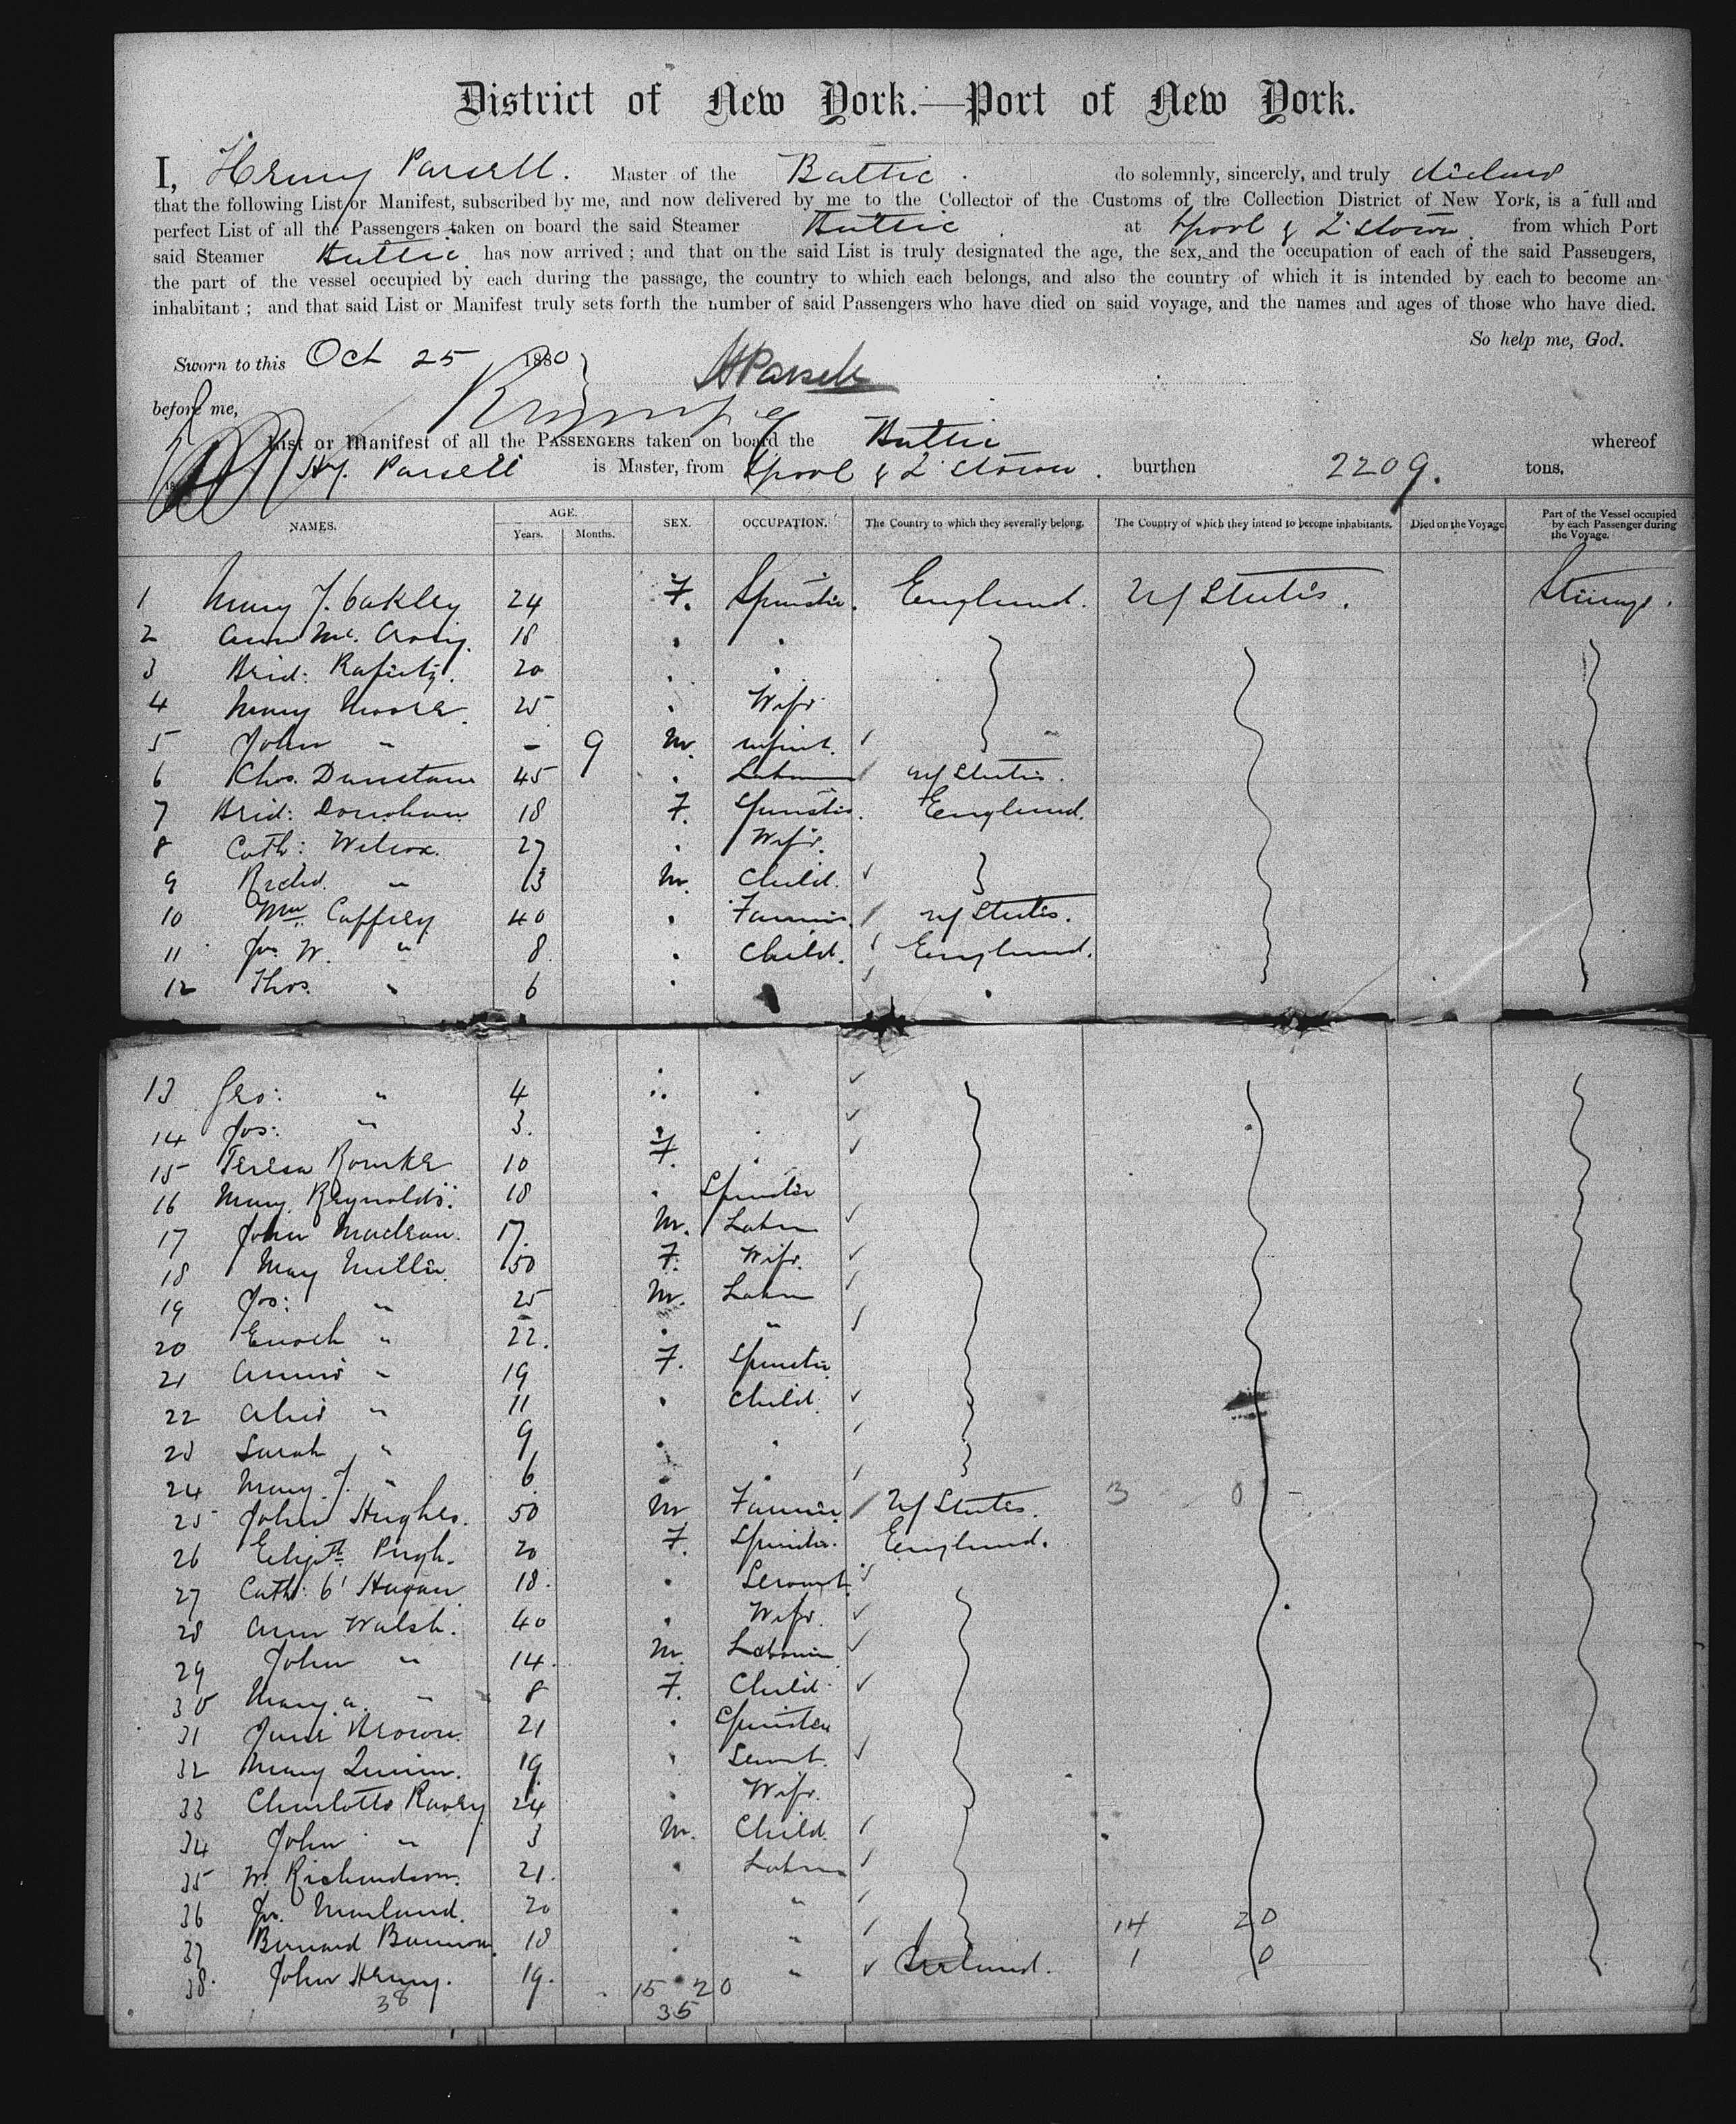 District of New York.—Port of New York.
I, Henry Parsell. Master of the Baltic. do solemnly, sincerely, and truly declare
that the following List or Manifest, subscribed by me, and now delivered by me to the Collector of the Customs of the Collection District of New York, is a full and
perfect List of all the Passengers taken on board the said Steamer Baltic. at Lpool & Q'stown. from which Port
said Steamer Baltic. has now arrived; and that on the said List is truly designated the age, the sex, and the occupation of each of the said Passengers,
the part of the vessel occupied by each during the passage, the country to which each belongs, and also the country of which it is intended by each to become an
inhabitant; and that said List or Manifest truly sets forth the number of said Passengers who have died on said voyage, and the names and ages of those who have died.
So help me, God.
Sworn to this Oct 25 1880
HParsell
before me,
List or Manifest of all the PASSENGERS taken on board the Baltic whereof
Hy. Parsell is Master, from Lpool & Q'stown. burthen 2209. tons.
NAMES. AGE. Years. Months. SEX. OCCUPATION. The Country to which they severally belong. The Country of which they intend to become inhabitants. Died on the Voyage. Part of the Vessel occupied by each Passenger during the Voyage.
1 Mary J. Oakley 24 F. Spinster. England. U/States. Steerage.
2 Ann Mc. 18 . .
3 Brid: 20 . .
4 Mary Moore. 25 . Wife
5 John " - 9 M. infant.
6 Chas. Dunstan 45 . Labourer U/States.
7 Brid: Donohue 18 F. Spinster. England.
8 Cath: Wilcox. 27 . Wife.
9 Richd. " 13 M. Child.
10 Mw. Caffrey 40 . Farmer. U/States.
11 Jas. W. " 8 . Child. England.
12 Thos. " 6 . .
13 Geo: " 4 . .
14 Jos: " 3. . .
15 Teresa Rourke 10 F. .
16 Mary Reynolds. 18 . Spinster
17 John Maclean. 17. M. Labr
18 May Miller. 50 F. Wife.
19 Jos: " 25 M. Labr
20 Enoch " 22. . "
21 Annie " 19 F. Spinster
22 Alice " 11 . Child.
23 Sarah " 9 . .
24 Mary J. " 6 . .
25 John Hughes. 50 M Farmer U/States. 3 0
26 Elizth. Pugh. 20 F. Spinster. England.
27 Cath: O'Hagan 18. . Servant
28 Ann Walsh. 40 . Wife.
29 John " 14. M. Labourer
30 Mary A. " 8 F. Child.
31 Jane Brown. 21 . Spinster
32 Mary Quinn. 19. . Servt.
33 Charlotte 24 . Wife.
34 John " 3 M. Child.
35 W. Richardson. 21. . Labr
36 Jas. Marland. 20 . "
37 Bernard 18 . " 14 20
38. John Henry. 19. . " Ireland. 1 0
38 15 20
35